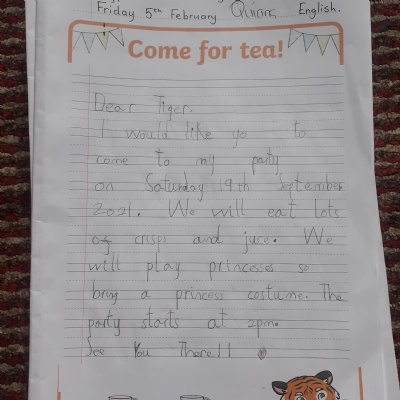 Friday 5th February Quinns English.
Come for tea!
Dear Tiger.
I would like yo to
come to my party
on Saturday 19th September
2021. We will eat lots
of crisp and juce. We
will play princesses so
bring a princess costume. The
party starts at 2pm.
See You There!!